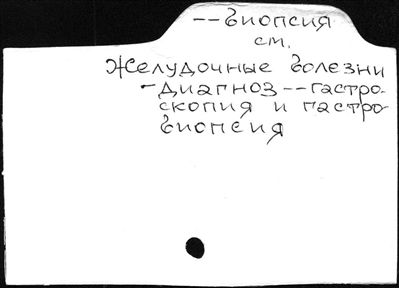 --биопсия
см.
Желудочные болезни
-диагноз--гастро-
скопия и гастро-
биопсия